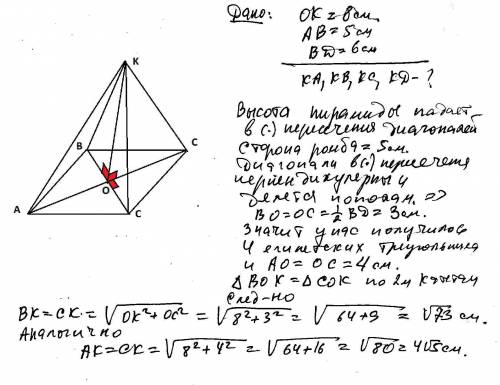 K
B
C
O
A
C
Дано: OK = 8см
AB = 5см
BД = 6см
KA, KB, KC, KD - ?
Высота пирамиды падает
в (·) пересечения диагоналей
Сторона ромба = 5см.
Диагонали в (·) пересечения
перпендикулярны и
делятся пополам. =>
BO = OC = 1/2 BД = 3см.
Значит у нас получилось
4 египетских треугольника
и AO = OC = 4 см.
Δ BOK = Δ COK по 2м катетам
след-но
BK = CK = √OK²+OC² = √8²+3² = √64+9 = √73 см.
Аналогично
AK = CK = √8²+4² = √64+16 = √80 = 4√5 см.